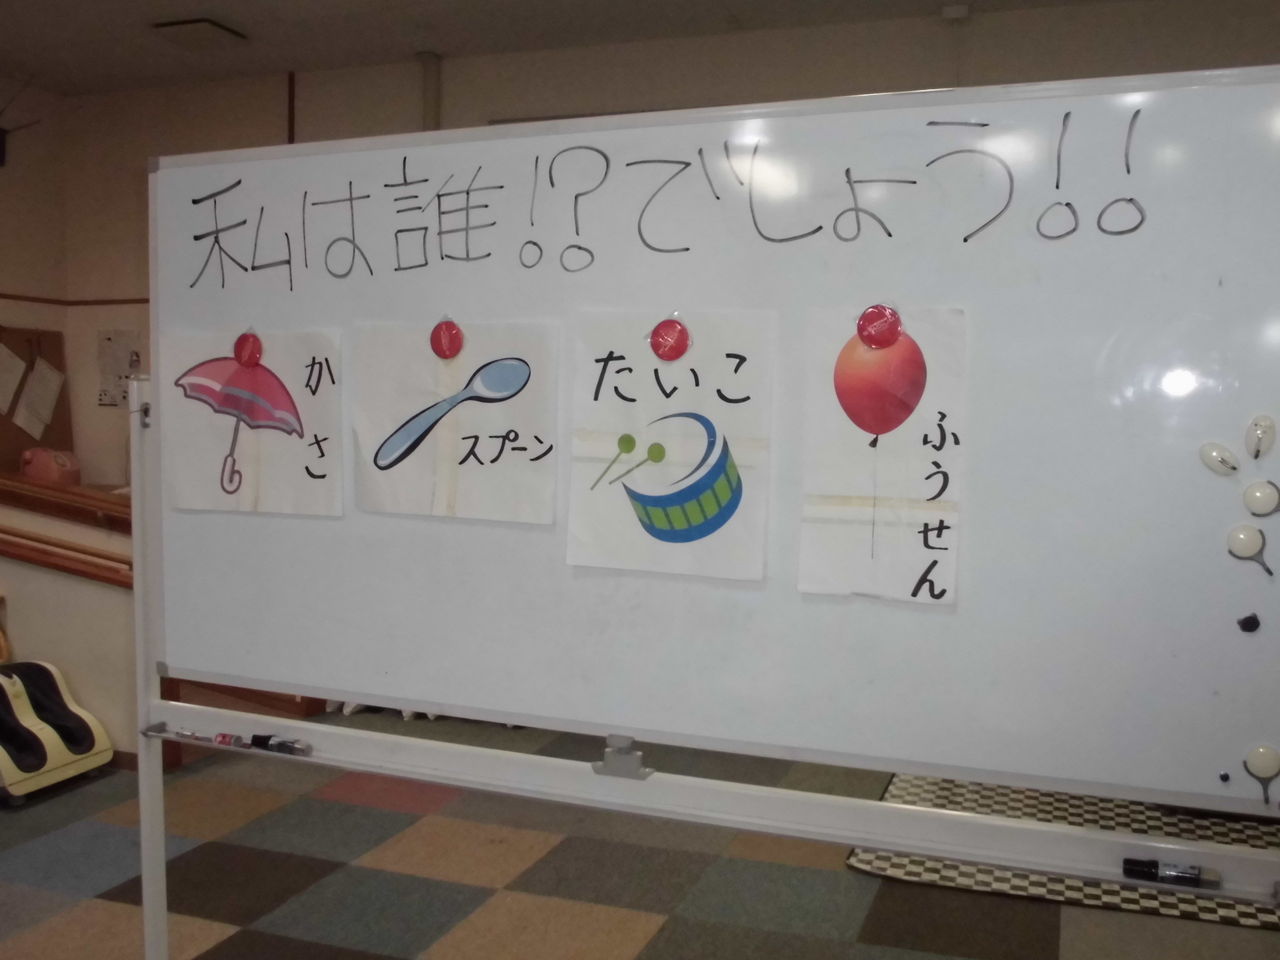 私は誰!?でしょう!!
かさ
スプーン
たいこ
ふうせん